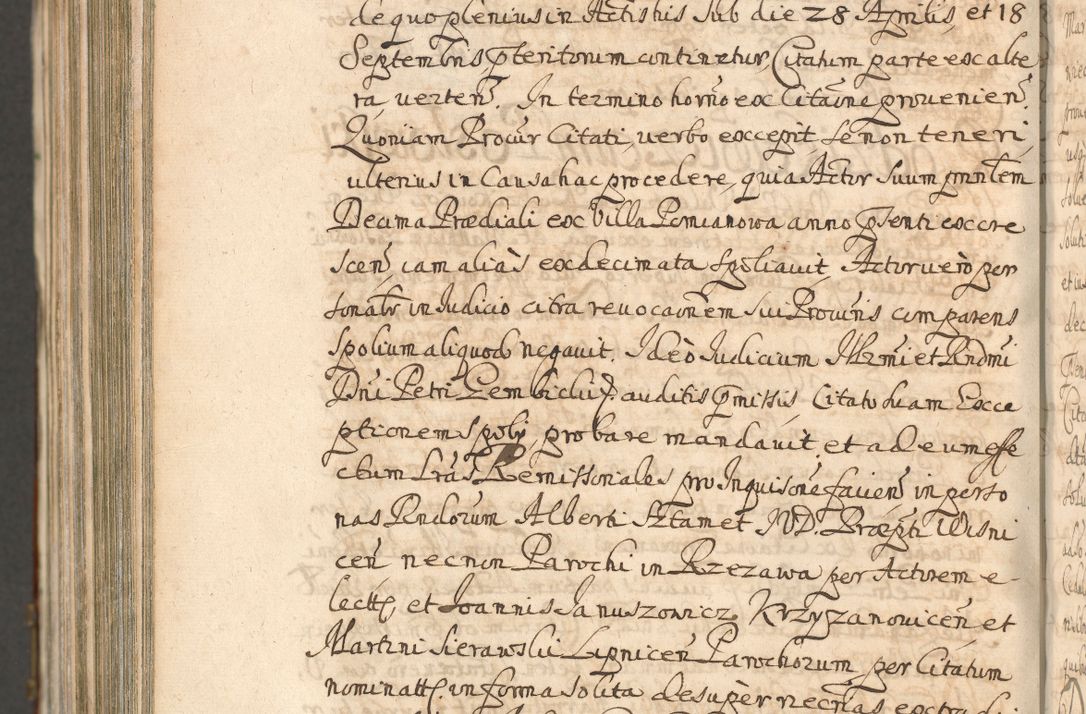 de quo plenius in Actis his sub die 28 Aprilis, et 18
Septembris pteritorum continetur, Citatum parte ex alte
ra verten. In termino horno ex Citaone provenien.
Quoniam Procur Citati, verbo excepit se non teneri
ulterius in Causa hac procedere, quia Actor suum pntem
Decima Prædiali ex Villa Pomianowa anno psenti excre
scen, iam aliàs exdecimata spoliavit, Actor verò per
sonalr in Iudicio citra revocaonem sui Procuris comparens
spolium aliquod negavit. Ideò Iudicium Illrmi et Rndmi
Dni Petri Gembicki auditis pmissis, Citato suam Exce
ptionem spolij, probare mandavit, et ad eum effe
ctum Lras Remissoriales pro Inquisone facien in perso
nas Rndorum Alberti et IVD. Præpti Wisni
cen necnon Parochi in Rzezawa per Actorem e-
lectt, et Ioannis Ianuszowicz Krzyzanovicen et
Martini Sierawski Lipnicen Parochorum per Citatum
nominatt, in forma solita desupèr necrias extradi